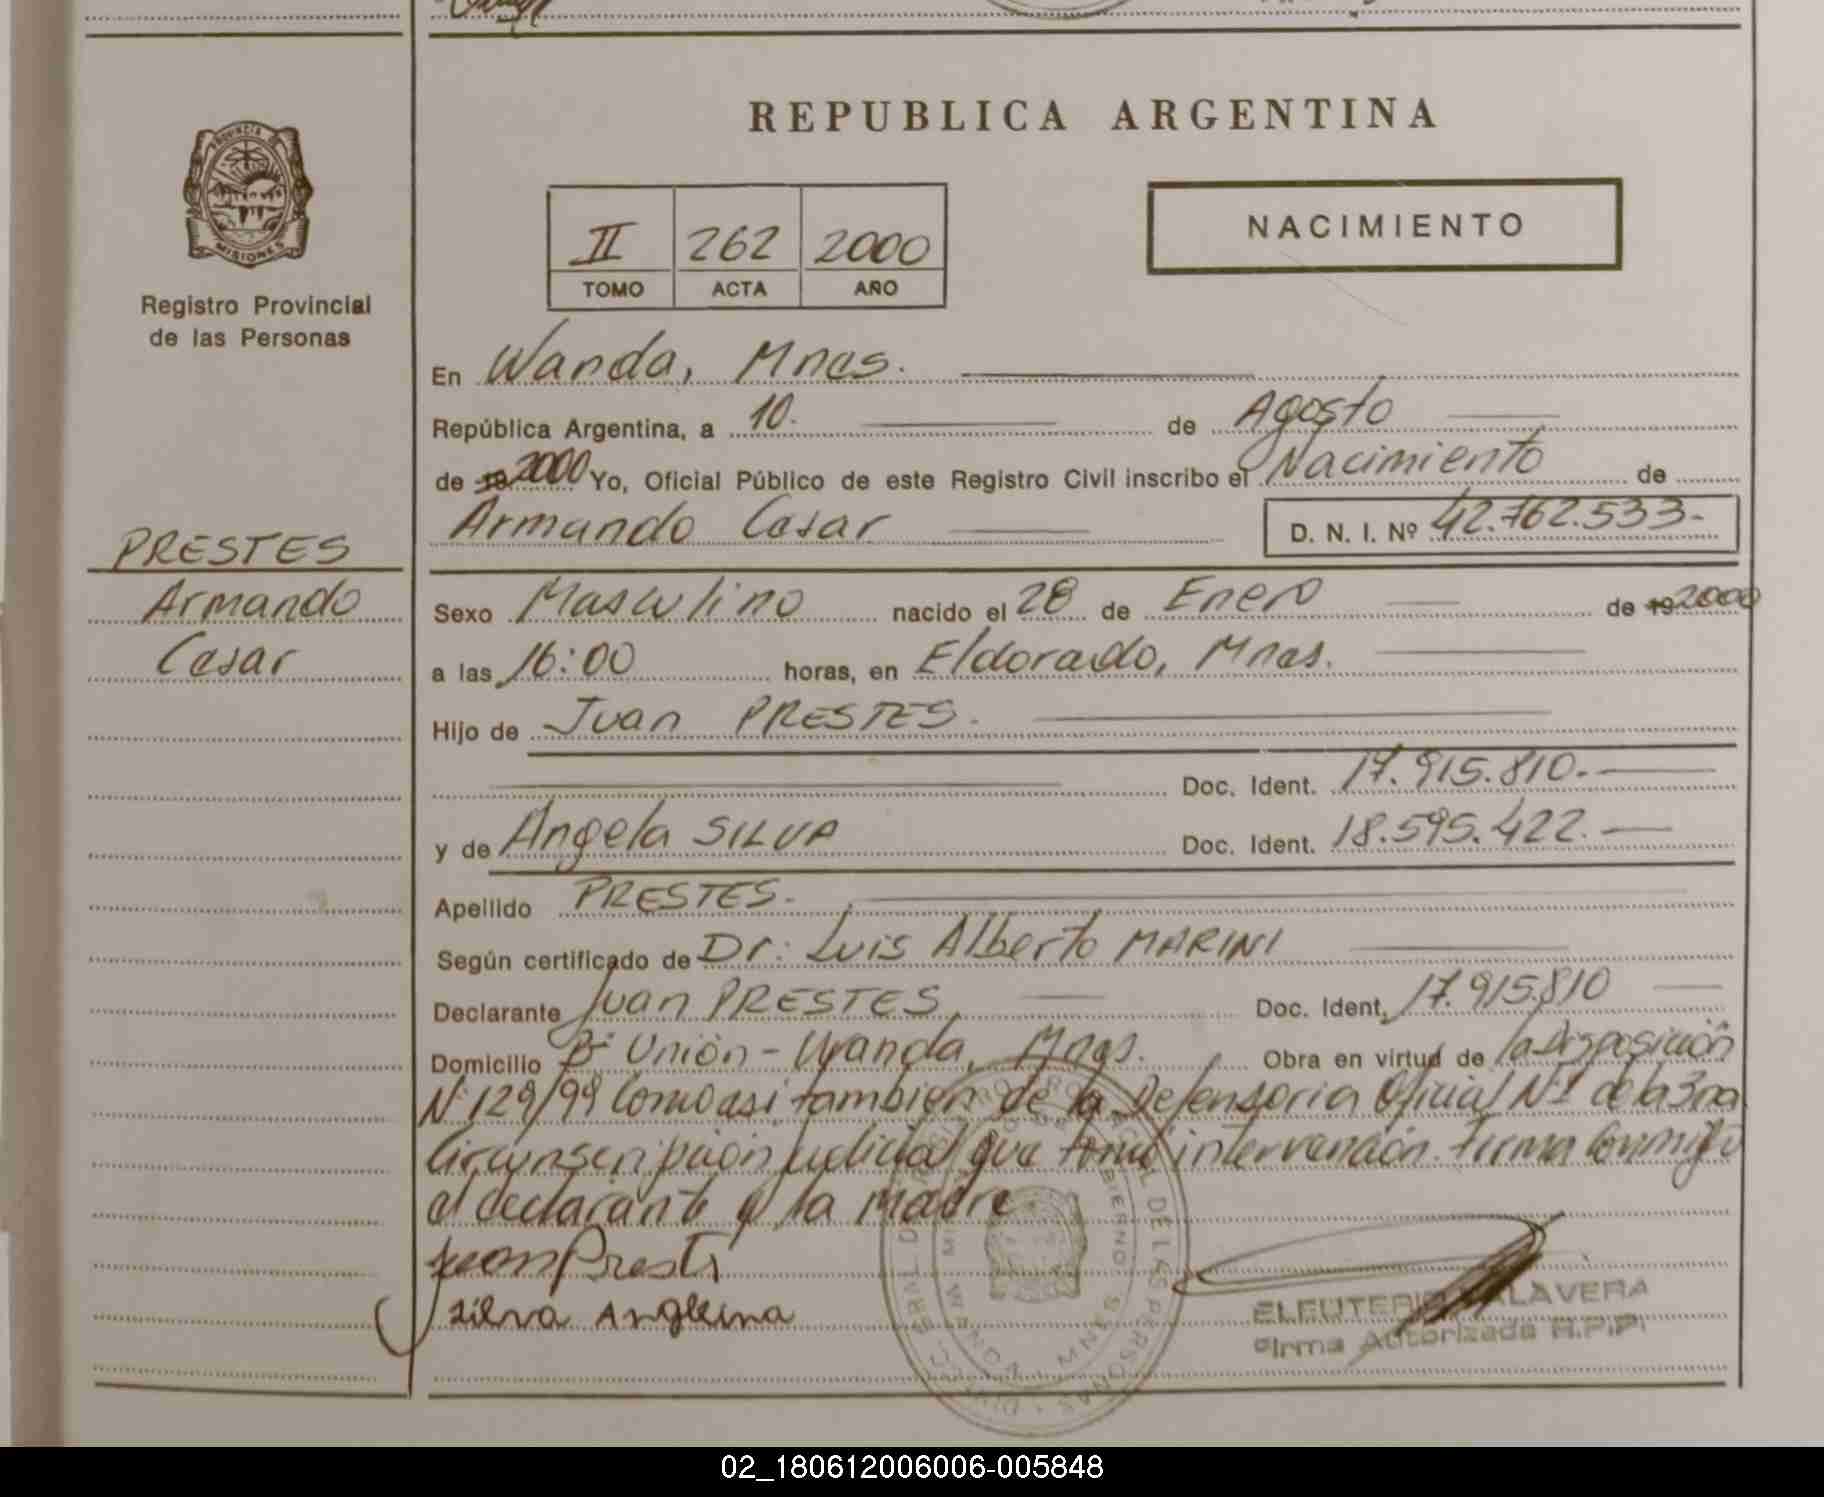 REPUBLICA ARGENTINA
PROVINCIA DE
MISIONES
Registro Provincial
de las Personas
II 262 2000
TOMO ACTA AÑO
NACIMIENTO
En Wanda, Mnes.
República Argentina, a 10. de Agosto
de 19 2000 Yo, Oficial Público de este Registro Civil inscribo el Nacimiento de
Armando Cesar D. N. I. Nº 42.762.533-
PRESTES
Armando
Cesar
Sexo Masculino nacido el 28 de Enero de 19 2000
a las 16:00 horas, en Eldorado, Mnes.
Hijo de Juan PRESTES.
Doc. Ident. 17.915.810.
y de Angela SILVA Doc. Ident. 18.595.422.
Apellido PRESTES.
Según certificado de Dr: Luis Alberto MARINI
Declarante Juan PRESTES Doc. Ident. 17.915.810
Domicilio Bº Unión - Wanda, Mnes. Obra en virtud de la Disposición
Nº 129/99 Como asi, tambien de la Defensoria Oficial Nº 1 de la 3ra
Circunscripción judicial que tomó intervención. Firma conmigo
el declarante y la madre
Juan Prests
Silva Anglina
ELEUTERIO TALAVERA
Firma Autorizada R.P.P.
WANDA MNES
02_180612006006-005848